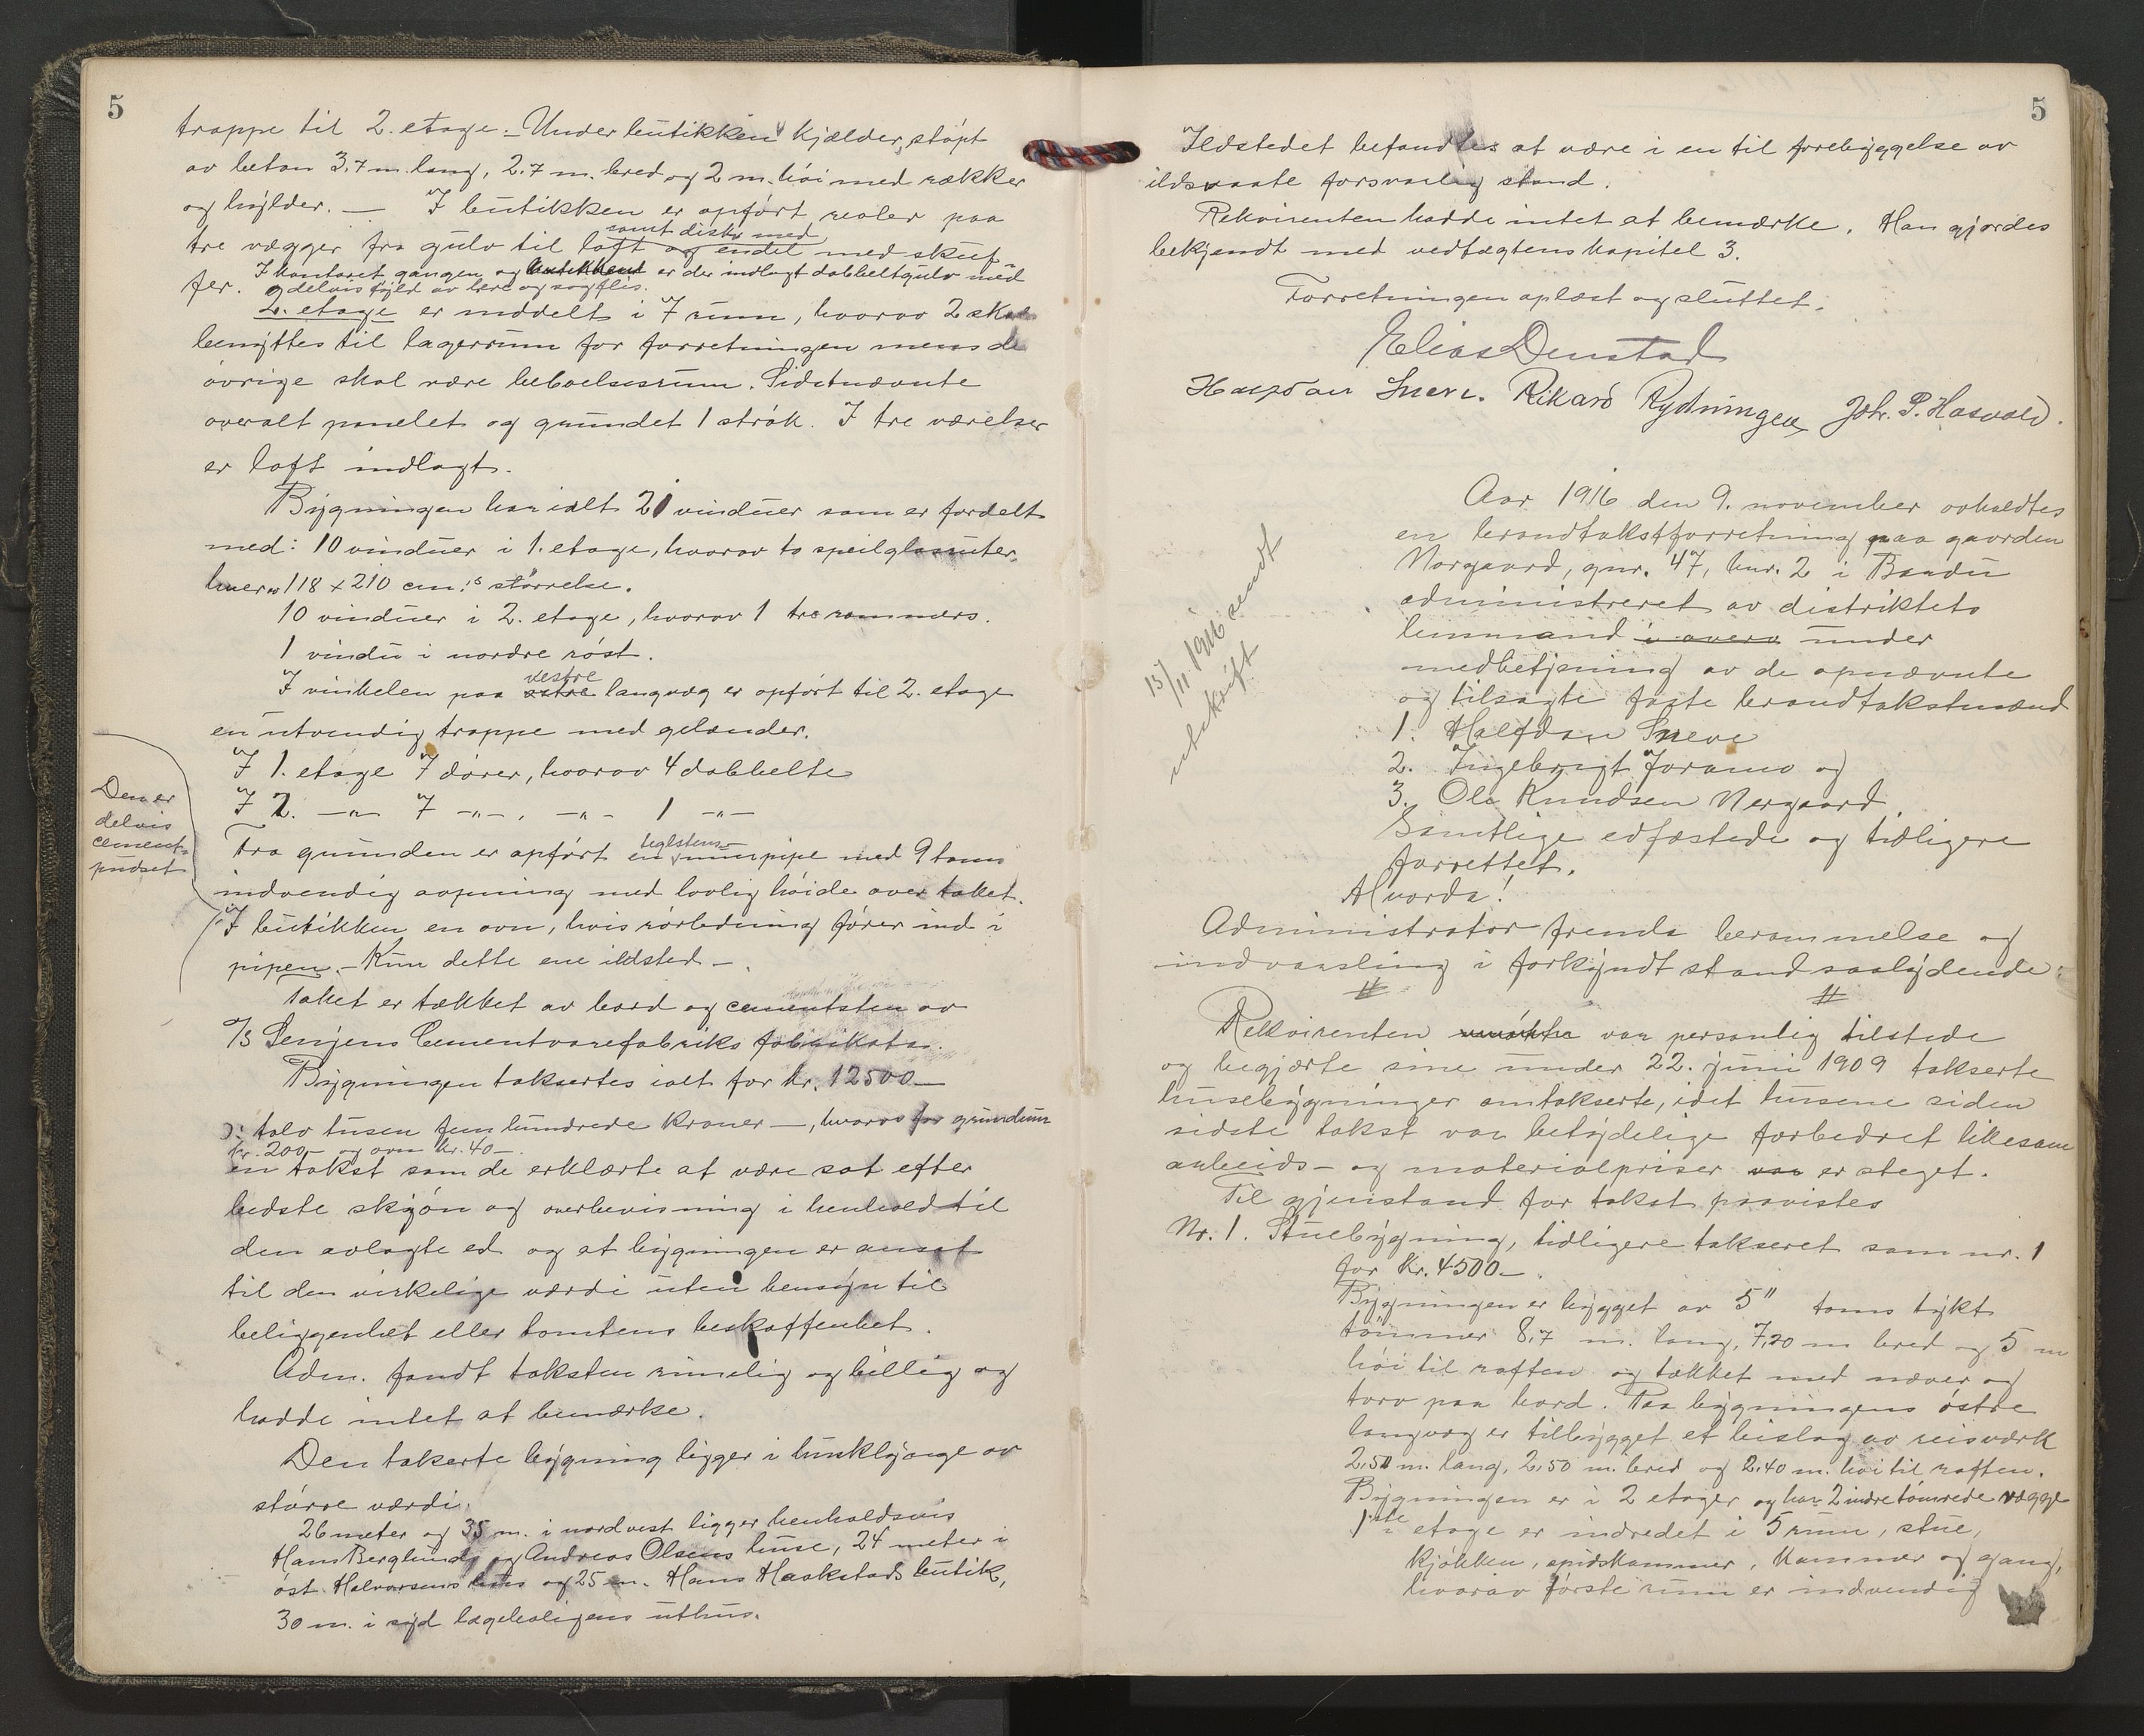 5
trappe til 2. etage. – Under butikken kjælder, støpt
av beton 3,7 m. lang, 2,7 m. bred og 2 m. høi med rækker
og hylder. — I butikken er opført realer paa
samt disk med
tre vægger fra gulv til loft og endel med skuf-
fer. I kontoret gangen og butikken er der indlagt dobbeltgulv med
og delvis fyld av lere og sagflis.
2. etage er inddelt i 7 rum, hvorav 2 skal
benyttes til lagerrum for forretningen mens de
øvrige skal være beboelsesrum. Sidstnævnte
overalt panelet og grundet 1 strøk. I tre værelser
er loft indlagt.
Bygningen har ialt 21 vinduer som er fordelt
med: 10 vinduer i 1. etage, hvorav to speilglasruter,
hver 118 x 210 cm.s størrelse.
10 vinduer i 2. etage, hvorav 1 tre rammers.
1 vindu i nordre røst.
vestre
I vinkelen paa østre langvæg er opført til 2. etage
en utvendig trappe med gelænder.
I 1. etage 7 dører, hvorav 4 dobbelte
I 2. —"— 7 —"—, —"— 1 —"—
Den er
delvis
cement-
pudset
teglstens-
Fra grunden er opført en murpipe med 9 toms
indvendig aapning med lovlig høide over taket.
I butikken en ovn, hvis rørledning fører ind i
pipen. – Kun dette ene ildsted –.
Taket er tækket av bord og cementsten av
A/S Senjens Cementvarefabriks fabrikata.
Bygningen taksertes ialt for kr. 12500 —
ɔ: tolv tusen fem hundrede kroner —, hvorav for grundmur
kr. 200 — og ovn kr. 40 —.
en takst som de erklærte at være sat efter
bedste skjøn og overbevisning i henhold til
den avlagte ed og at bygningen er ansat
til den virkelige værdi uten hensyn til
beliggenhet eller tomtens beskaffenhet.
Adm. fandt taksten rimelig og billig og
hadde intet at bemærke.
Den takserte bygning ligger i husklynge av
større værdi.
26 meter og 35 m. i nordvest ligger henholdsvis
Hans Berglunds og Andreas Olsens huse, 24 meter i
øst Halvorsens hus og 25 m. Hans Haakstads butik,
30 m. i syd lægeboligens uthus.
5
Ildstedet befandtes at være i en til forebyggelse av
ildsvaate forsvarlig stand.
Rekvirenten hadde intet at bemærke. Han gjordes
bekjendt med vedtægtens kapitel 3.
Forretningen oplæst og sluttet.
Elias Denstad
Halfdan Sneve. Rikard Rydningen Joh. P. Hasvold.
15/11 1916 sendt
utskrift
Aar 1916 den 9. november avholdtes
en brandtakstforretning paa gaarden
Norgaard, gnr. 47, bnr. 2 i Bardu
administreret av distriktets
lensmand i overv under
medbetjening av de opnævnte
og tilsagte faste brandtakstmænd
1. Halfdan Sneve
2. Ingebrigt Foramo og
3. Ole Knudsen Nergaard
Samtlige edfæstede og tidligere
forrettet.
Hvorda!
Administrator fremla berammelse og
indvarsling i forkyndt stand saalydende:
# #
Rekvirenten var personlig tilstede
og begjærte sine under 22. juni 1909 takserte
husebygninger omtakserte, idet husene siden
sidste takst var betydelige forbedret likesom
arbeids- og materialpriser var er steget.
Til gjenstand for takst paavistes
Nr. 1. Stuebygning, tidligere takseret som nr. 1
for kr. 4500 —.
Bygningen er bygget av 5" toms tykt
tømmer 8,7 m. lang, 7,20 m bred og 5 m
høi til raften og tækket med næver og
torv paa bord. Paa bygningens østre
langvæg er tilbygget et bislag av reisverk
2,50 m. lang, 2,50 m. bred og 2,40 m. høi til raften.
Bygningen er i 2 etager og har 2 indre tømrede vægge
1ste etage er indredet i 5 rum, stue,
kjøkken, spiskammer, kammer og gang,
hvorav første rum er indvendig